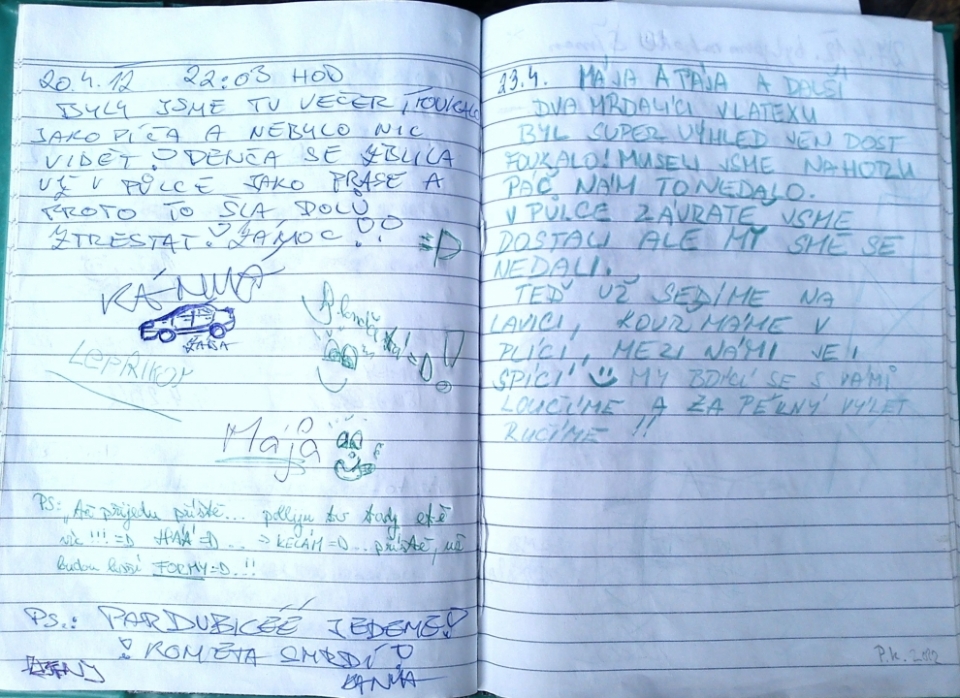 20.4.12 22:03 HOD
BYLY JSME TU VEČER, FOUKALO
JAKO PÍČA A NEBYLO NIC
VIDĚT DENČA SE ZBLILA
UŽ V PŮLCE JAKO PRASE A
PROTO TO ŠLA DOLŮ
ZTRESTAT! ZÁMOC!
=D
KÁNMA
ZABA
=D!
LEPŘIKON
Mája
PS: Až přijedu příště... pobliju to tady ještě
víc!!! =D HAÁ =D... KECÁM =D... příště, už
budou lepší FORMY =D.!!
PS.: PARDUBICÉÉ JEDEME!
! KOMETA SMRDÍ!
KÁNMA
23.4. MÁJA A PÁJA A DALŠÍ
DVA MRDALÍCI V LATEXU
BYL SUPER VÝHLED JEN DOST
FOUKALO! MUSELI JSME NAHORU
PÁČ NÁM TO NEDALO.
V PŮLCE ZÁVRATĚ JSME
DOSTALI ALE MY SME SE
NEDALI.
TEĎ UŽ SEDÍME NA
LAVICI, KOUR MÁME V
PLÍCI, MEZI NÁMI JE I
SPÍCÍ MY BDÍCÍ SE S VÁMI
LOUČÍME A ZA PĚKNÝ VÝLET
RUČÍME!!
P.K. 2012